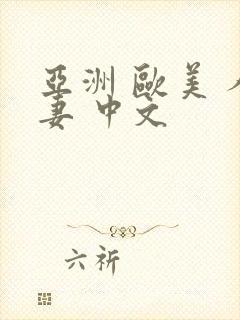 亞洲歐美人
妻中文
六祈